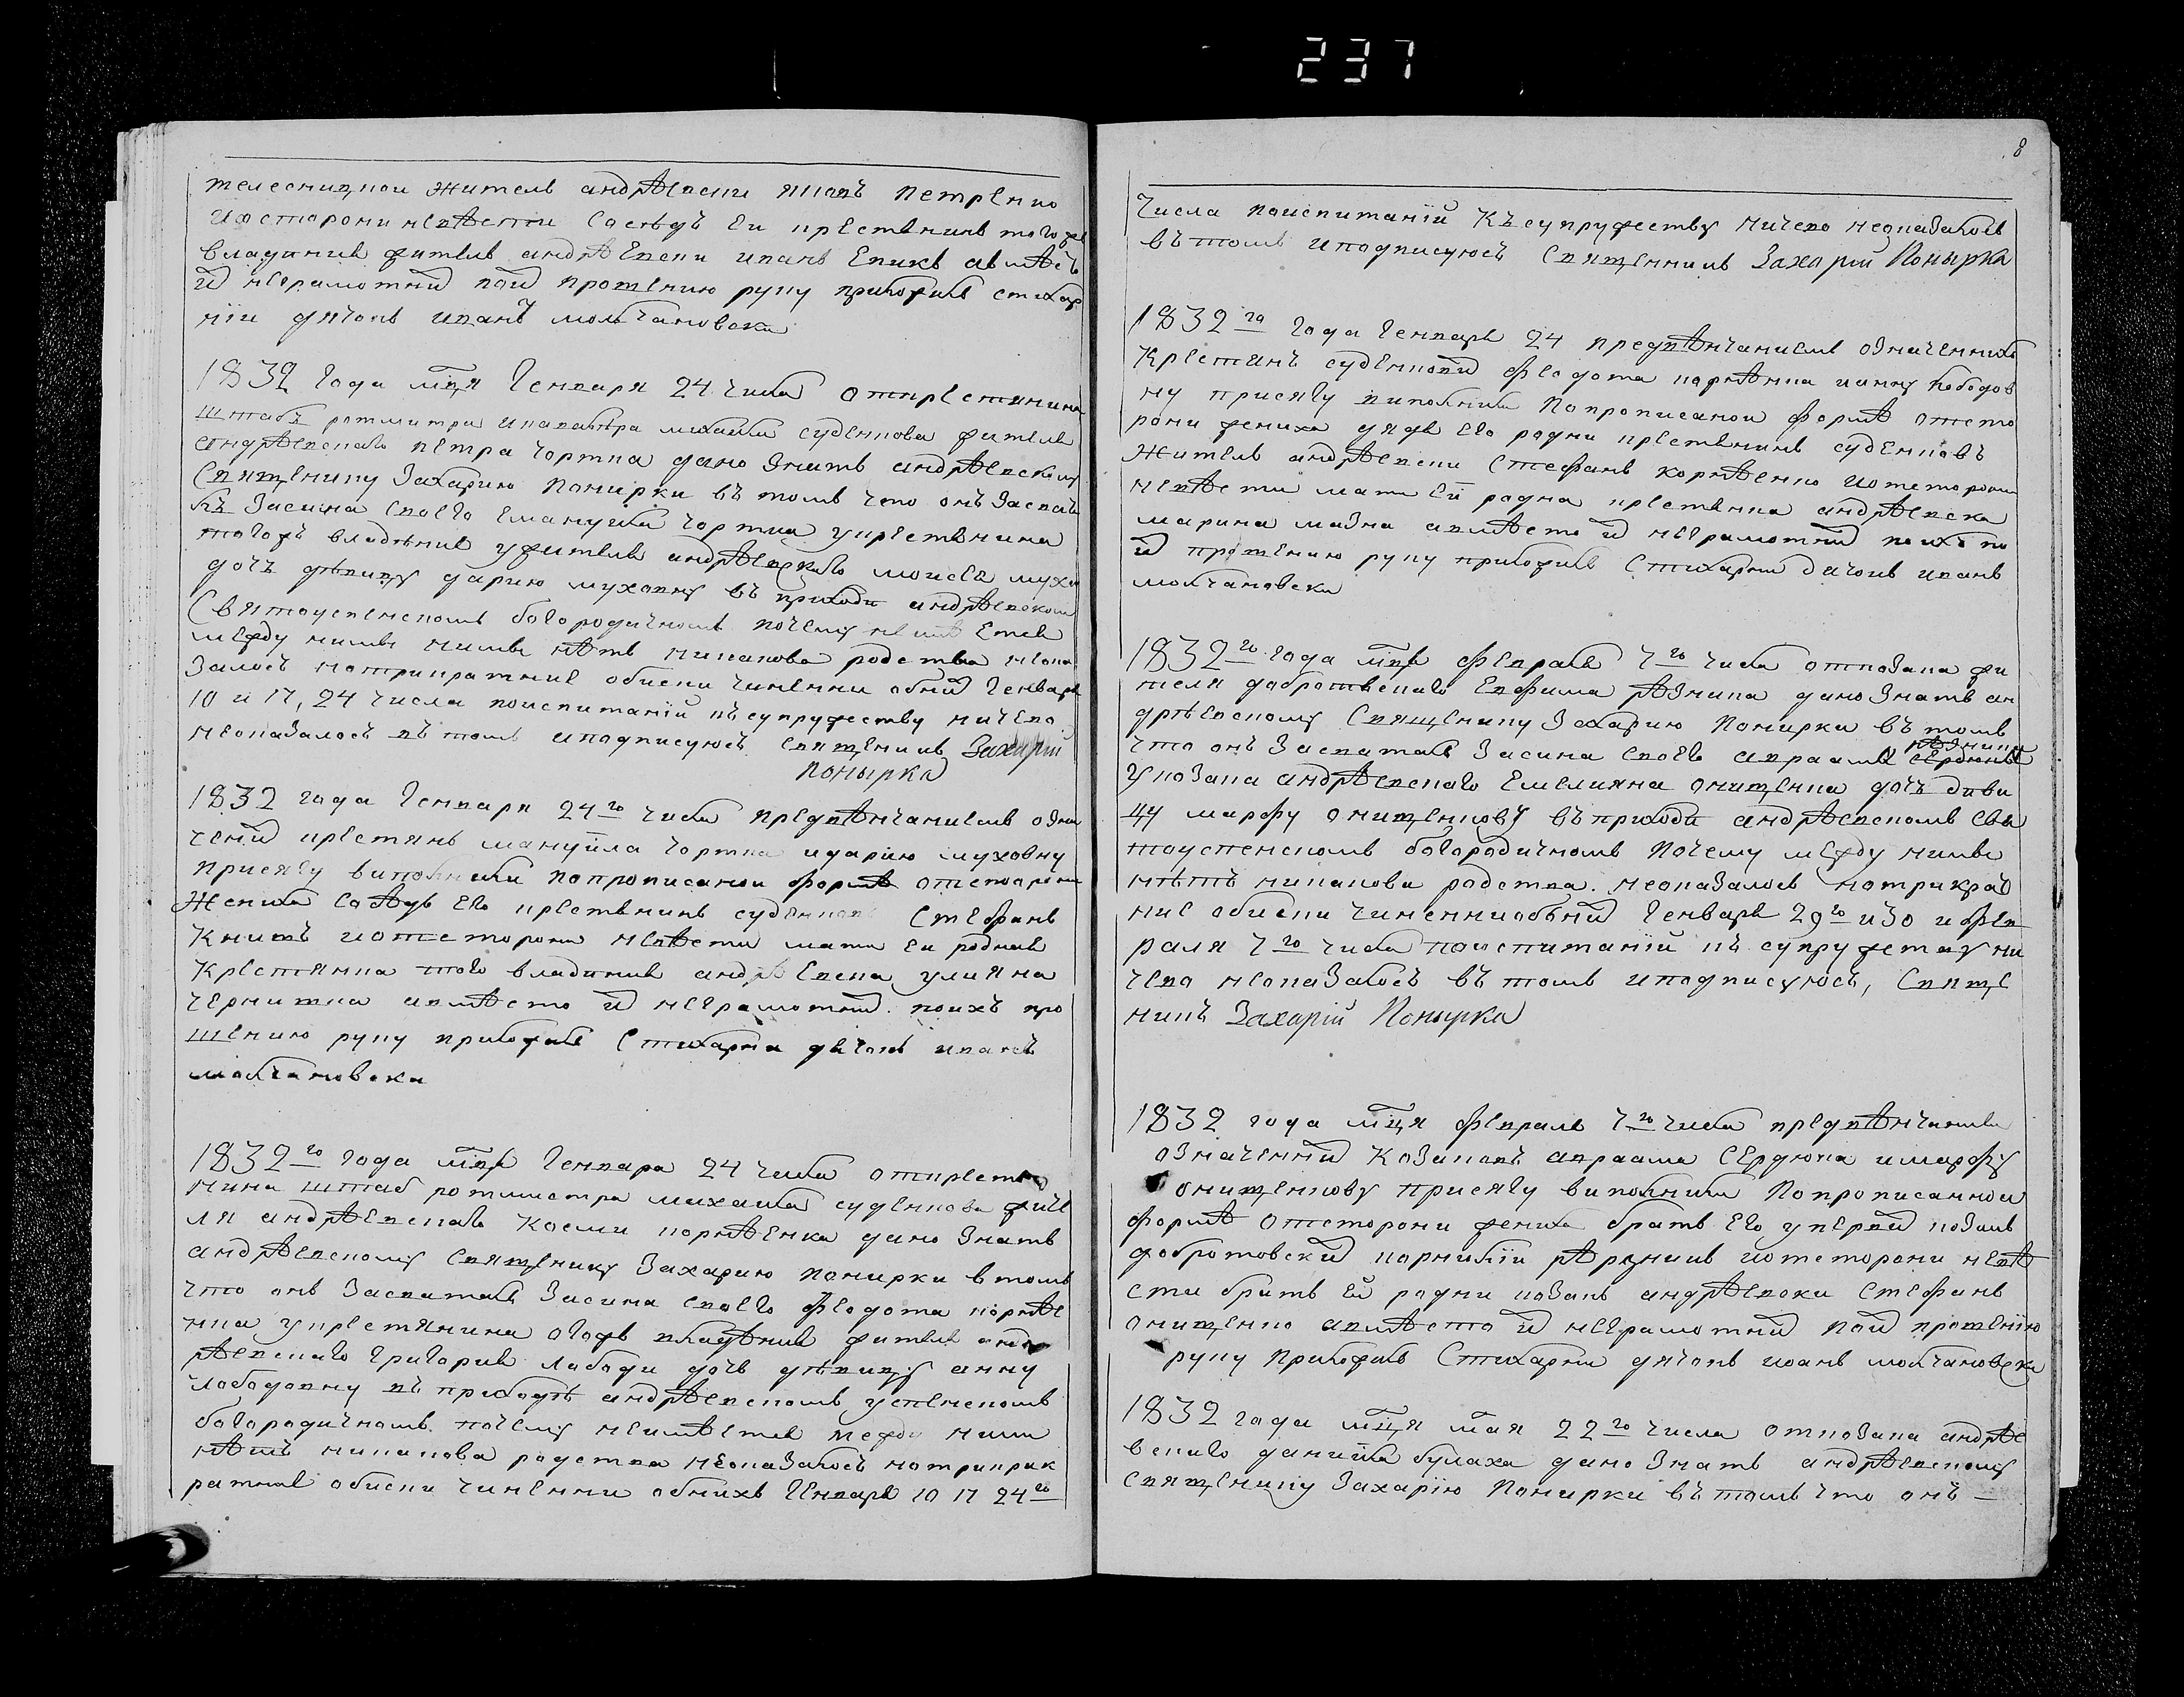 237
8
телесницкои житель андрѣевски яковъ петренко
изсторони невѣсти Сосѣдъ Еи крестянинъ тогожъ
Владѣния житель андрѣевски иванъ Еникъ авмѣсъ
й неграмотнй пой прошению руку приложилъ стихар
ній дячокъ иванъ молчановски
1832 Года мця Генваря 24 числа откретянина
штабъ ротмитра икавалѣра михаила суденкова жителя
андрѣевскаго петра чортка дано знать андрѣевскому
Священику Захарию Понирки въ томъ что онъ Засвата
лъ Засина своего Емануила чортка укрестянина
тогожъ владѣния ужителя андрѣевскаго моисея мухи
дочъ дѣвицу дарию муховну въ приходи андрѣевском
Святоуспенскомъ богородичномъ почему неимѣ Етсе
между ними нимъ нѣтъ никакова родства неока
залосъ нотрикратние обиски чиненни обнй Генваря
10 и 17, 24 числа поиспитаній къ супружеству ничего
неоказалосъ въ томъ иподписуюсъ Священикъ Захарій
Понырка
1832 года Генваря 24го числа предвѣнчаниемъ озна
ченй крестянъ мануйла чортка идарию муховну
присягу виполнили попрописаной формѣ отстоарони
Жениха сосѣдъ Его крестянинъ суденковъ Стефанъ
Книшъ иотсторони невѣсти мати Еи родная
Крестянка того владѣния андрѣевска улияна
чернишка авмѣсто й неграмотнй поихъ про
шению руку приложилъ Стихарни дячокъ иванъ
молчановски
1832го года мця Генвара 24 числа откретя
нина штаб ротмистра михаила суденкова жите
ля андрѣевскаго Косми корнѣенка дано знать
андрѣевскому Священику Захарию понирки в томъ
что онъ Засваталъ Засина своего Феодота корнѣе
нка укрестянина тогожъ владѣния жителя анд
рѣевскаго Григория Лободи дочь дѣвицу анну
Лободовну въ приходѣ андрѣевскомъ успенскомъ
богородичномъ почему неимѣетсе межди ними
нѣтъ никакова родства неоказалосъ нотрикрак
ратние обиски чиненни обнихъ Генваря 10 17 24го
Числа поиспитаній Къ супружеству ничево неоказалосъ
въ томъ иподписуюсъ Священникъ Захарій Понырка
1832го года Генваря 24 предвѣнчаниемъ означенних
Крестянъ суденковй Феодота корнѣенка ианну Лободов
ну присягу виполнили попрописаной формѣ отсто
рони жениха дядя Его родни крестянинъ суденковъ
Житель андрѣевски Стефанъ корнѣенко иотсторони
невѣсти мати Ей родна крестянка андрѣевска
марина мазна авмѣсто й неграмотнй поихъ по
й прошению руку приложилъ Стихарни дячокъ иванъ
молчановски
1832го года мця февраля 7го числа отказака жи
теля добротвскаго Евфима рѣзника дано знать ан
дрѣевскому Священику Захарию Понирки въ томъ
что онъ Засваталъ Засина своего авраама Сердюка
рѣзника
Указака андрѣевскаго Емелияна онищенка дочъ диви
цу марфу онищенкову въ приходи андрѣевскомъ свя
тоуспенскомъ богородичномъ почему между ними
нѣтъ никакова родства. неоказалосъ нотрикрат
ние обиски чиненниобнй Генваря 29го и30 и фев
раля 7го числа поиспитаній къ супружетву ни
чево неоказалосъ въ томъ иподписуюсъ, Священ
никъ Захарій Понырка
1832 года мця февраля 7го числа предвѣнчаниемъ
означеннй Козаковъ авраама Сердюка имарфу
онищенкову присягу виполнили Попрописанной
формѣ Отсторони жениха братъ Его укервй козакъ
добротовский корнилій рѣзникъ иотсторони невѣ
сти братъ Ей родни козакъ андрѣевски Стефанъ
онищенко авмѣсто й неграмотнй пой прошению
руку Приложилъ Стихарни дячокъ иоанъ молчановски
1832 года мця мая 22го числа отказака андрѣе
вскаго данийла булаха дано Знать андрѣевскому
священику Захарію Понирки въ томъ что онъ –